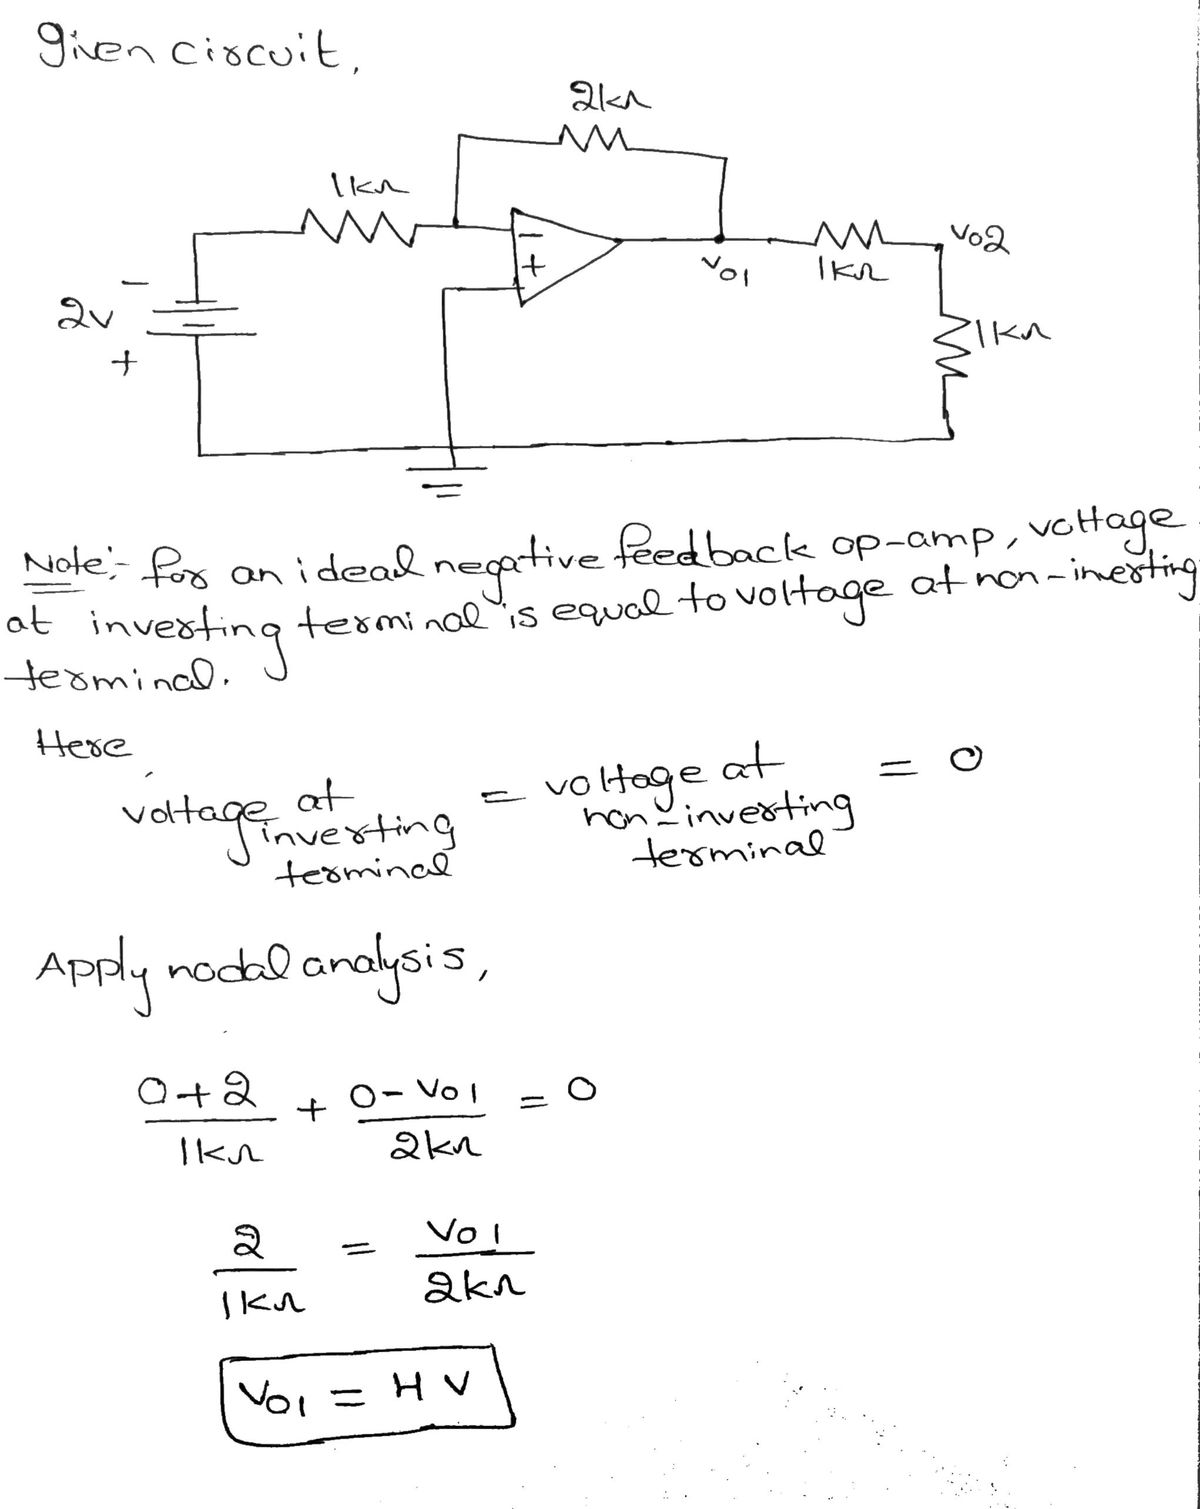 given circuit,
2kΩ
1kΩ
Vo2
Vo1
1kΩ
- 
2v
+
-
+
1kΩ
Note:- for an ideal negative feedback op-amp, voltage
at inverting terminal is equal to voltage at non-inverting
terminal.
Here,
voltage at inverting terminal = voltage at non-inverting terminal = 0
Apply nodal analysis,
0+2/1kΩ + 0-Vo1/2kΩ = 0
2/1kΩ = Vo1/2kΩ
Vo1 = 4 V